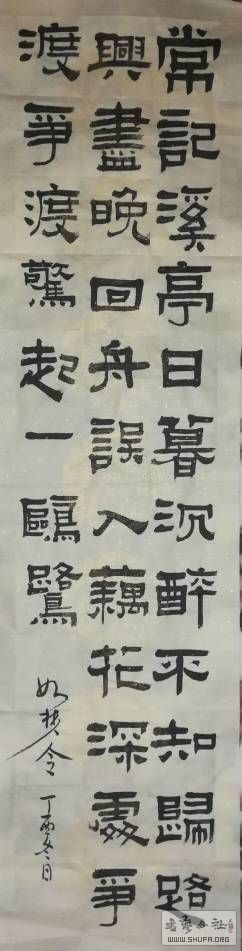 常記溪亭日暮沉醉不知歸路
興盡晚回舟誤入藕花深處爭
渡爭渡驚起一鷗鷺
如梦令
丁酉冬日
书艺公社
WWW.SHUFA.ORG